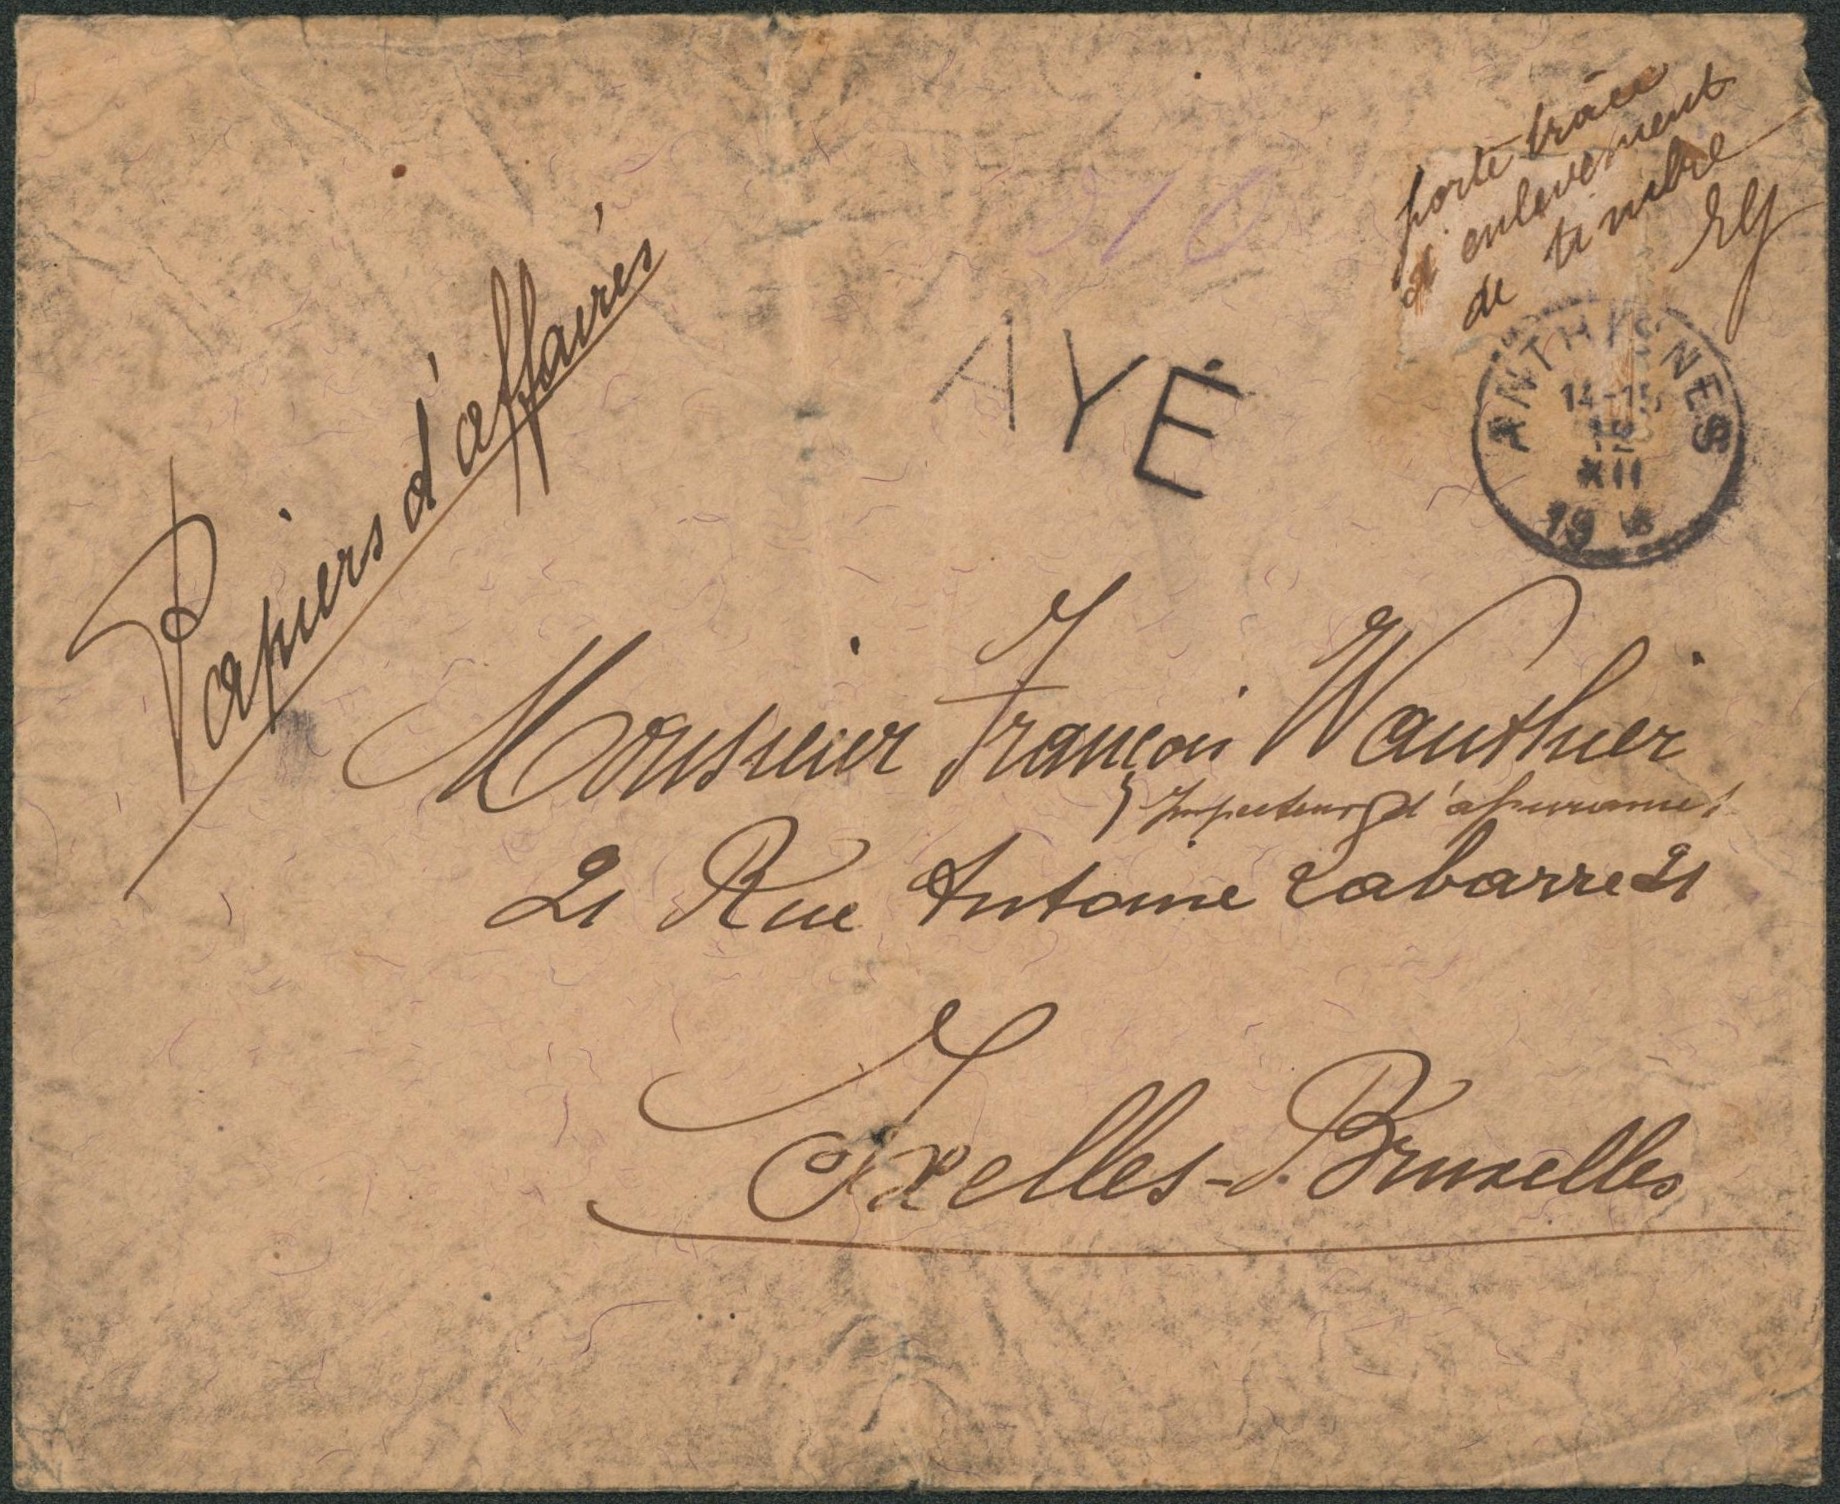 porte trace
d'enlèvement
de timbre
AYÉ
ANTHISNES
14-15
XII
19
Papiers d'affaires
Monsieur François Wauthier
Inspecteur
21 Rue Antoine Labarre 21
Ixelles-Bruxelles